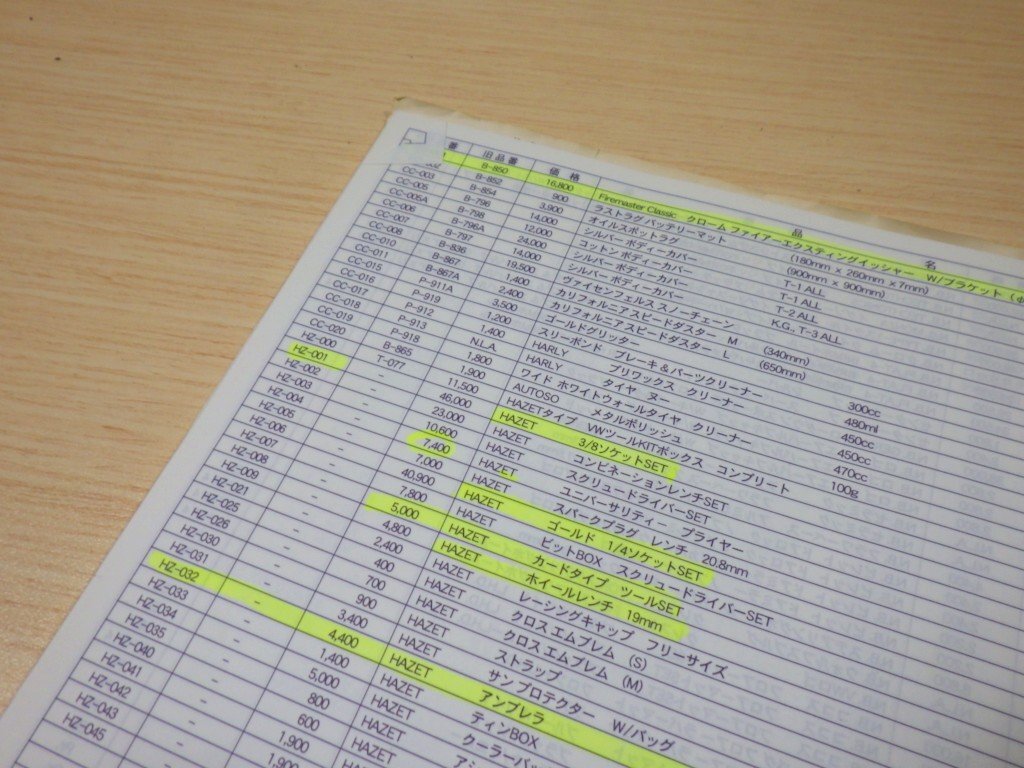 番 旧品番 価格 品名
B-850 16,800 Firemaster Classic クローム ファイアーエクスティングイッシャー W/ブラケット (φ
B-852 900 ラストラグバッテリーマット (180mm × 260mm ×7mm)
CC-003 B-854 3,900 オイルスポットラグ (900mm × 900mm)
CC-005 B-796 14,000 シルバー ボディーカバー T-1 ALL
CC-005A B-798 12,000 コットン ボディーカバー T-1 ALL
CC-006 B-796A 24,000 シルバー ボディーカバー T-2 ALL
CC-007 B-797 14,000 シルバー ボディーカバー K.G, T-3 ALL
CC-008 B-836 19,500 ヴァイセンフェルス スノーチェーン
CC-010 B-867 1,400 カリフォルニアスピードダスター M (340mm)
CC-011 B-867A 2,400 カリフォルニアスピードダスター L (650mm)
CC-015 P-911A 3,500 ゴールドグリッター 300cc
CC-016 P-919 1,200 スリーボンド ブレーキ&パーツクリーナー 480ml
CC-017 P-912 1,400 HARLY プリワックス クリーナー 450cc
CC-018 P-913 N.L.A. HARLY タイヤ ヌー 450cc
CC-019 P-918 1,800 ワイド ホワイトウォールタイヤ クリーナー 470cc
CC-020 B-865 1,900 AUTOSO メタルポリッシュ 100g
HZ-000 T-077 11,500 HAZETタイプ VWツールKITボックス コンプリート
HZ-001 - 46,000 HAZET 3/8ソケットSET
HZ-002 - 23,000 HAZET コンビネーションレンチSET
HZ-003 - 10,600 HAZET スクリュードライバーSET
HZ-004 - 7,400 HAZET ユニバーサリティー プライヤー
HZ-005 - 7,000 HAZET スパークプラグ レンチ 20.8mm
HZ-006 - 40,900 HAZET ゴールド 1/4ソケットSET
HZ-007 - 7,800 HAZET ビットBOX スクリュードライバーSET
HZ-008 - 5,000 HAZET カードタイプ ツールSET
HZ-009 - 4,800 HAZET ホイールレンチ 19mm
HZ-021 - 2,400 HAZET レーシングキャップ フリーサイズ
HZ-025 - 400 HAZET クロス エムブレム (S)
HZ-026 - 700 HAZET クロス エムブレム (M)
HZ-030 - 900 HAZET ストラップ
HZ-031 - 3,400 HAZET サンプロテクター W/バッグ
HZ-032 - 4,400 HAZET アンブレラ
HZ-033 - 1,400 HAZET ティンBOX
HZ-034 - 5,000 HAZET クーラーバッ
HZ-035 - 800 HAZET
HZ-040 - 600 HAZET
HZ-041 - 1,900
HZ-042 - 1,900
HZ-043
HZ-045